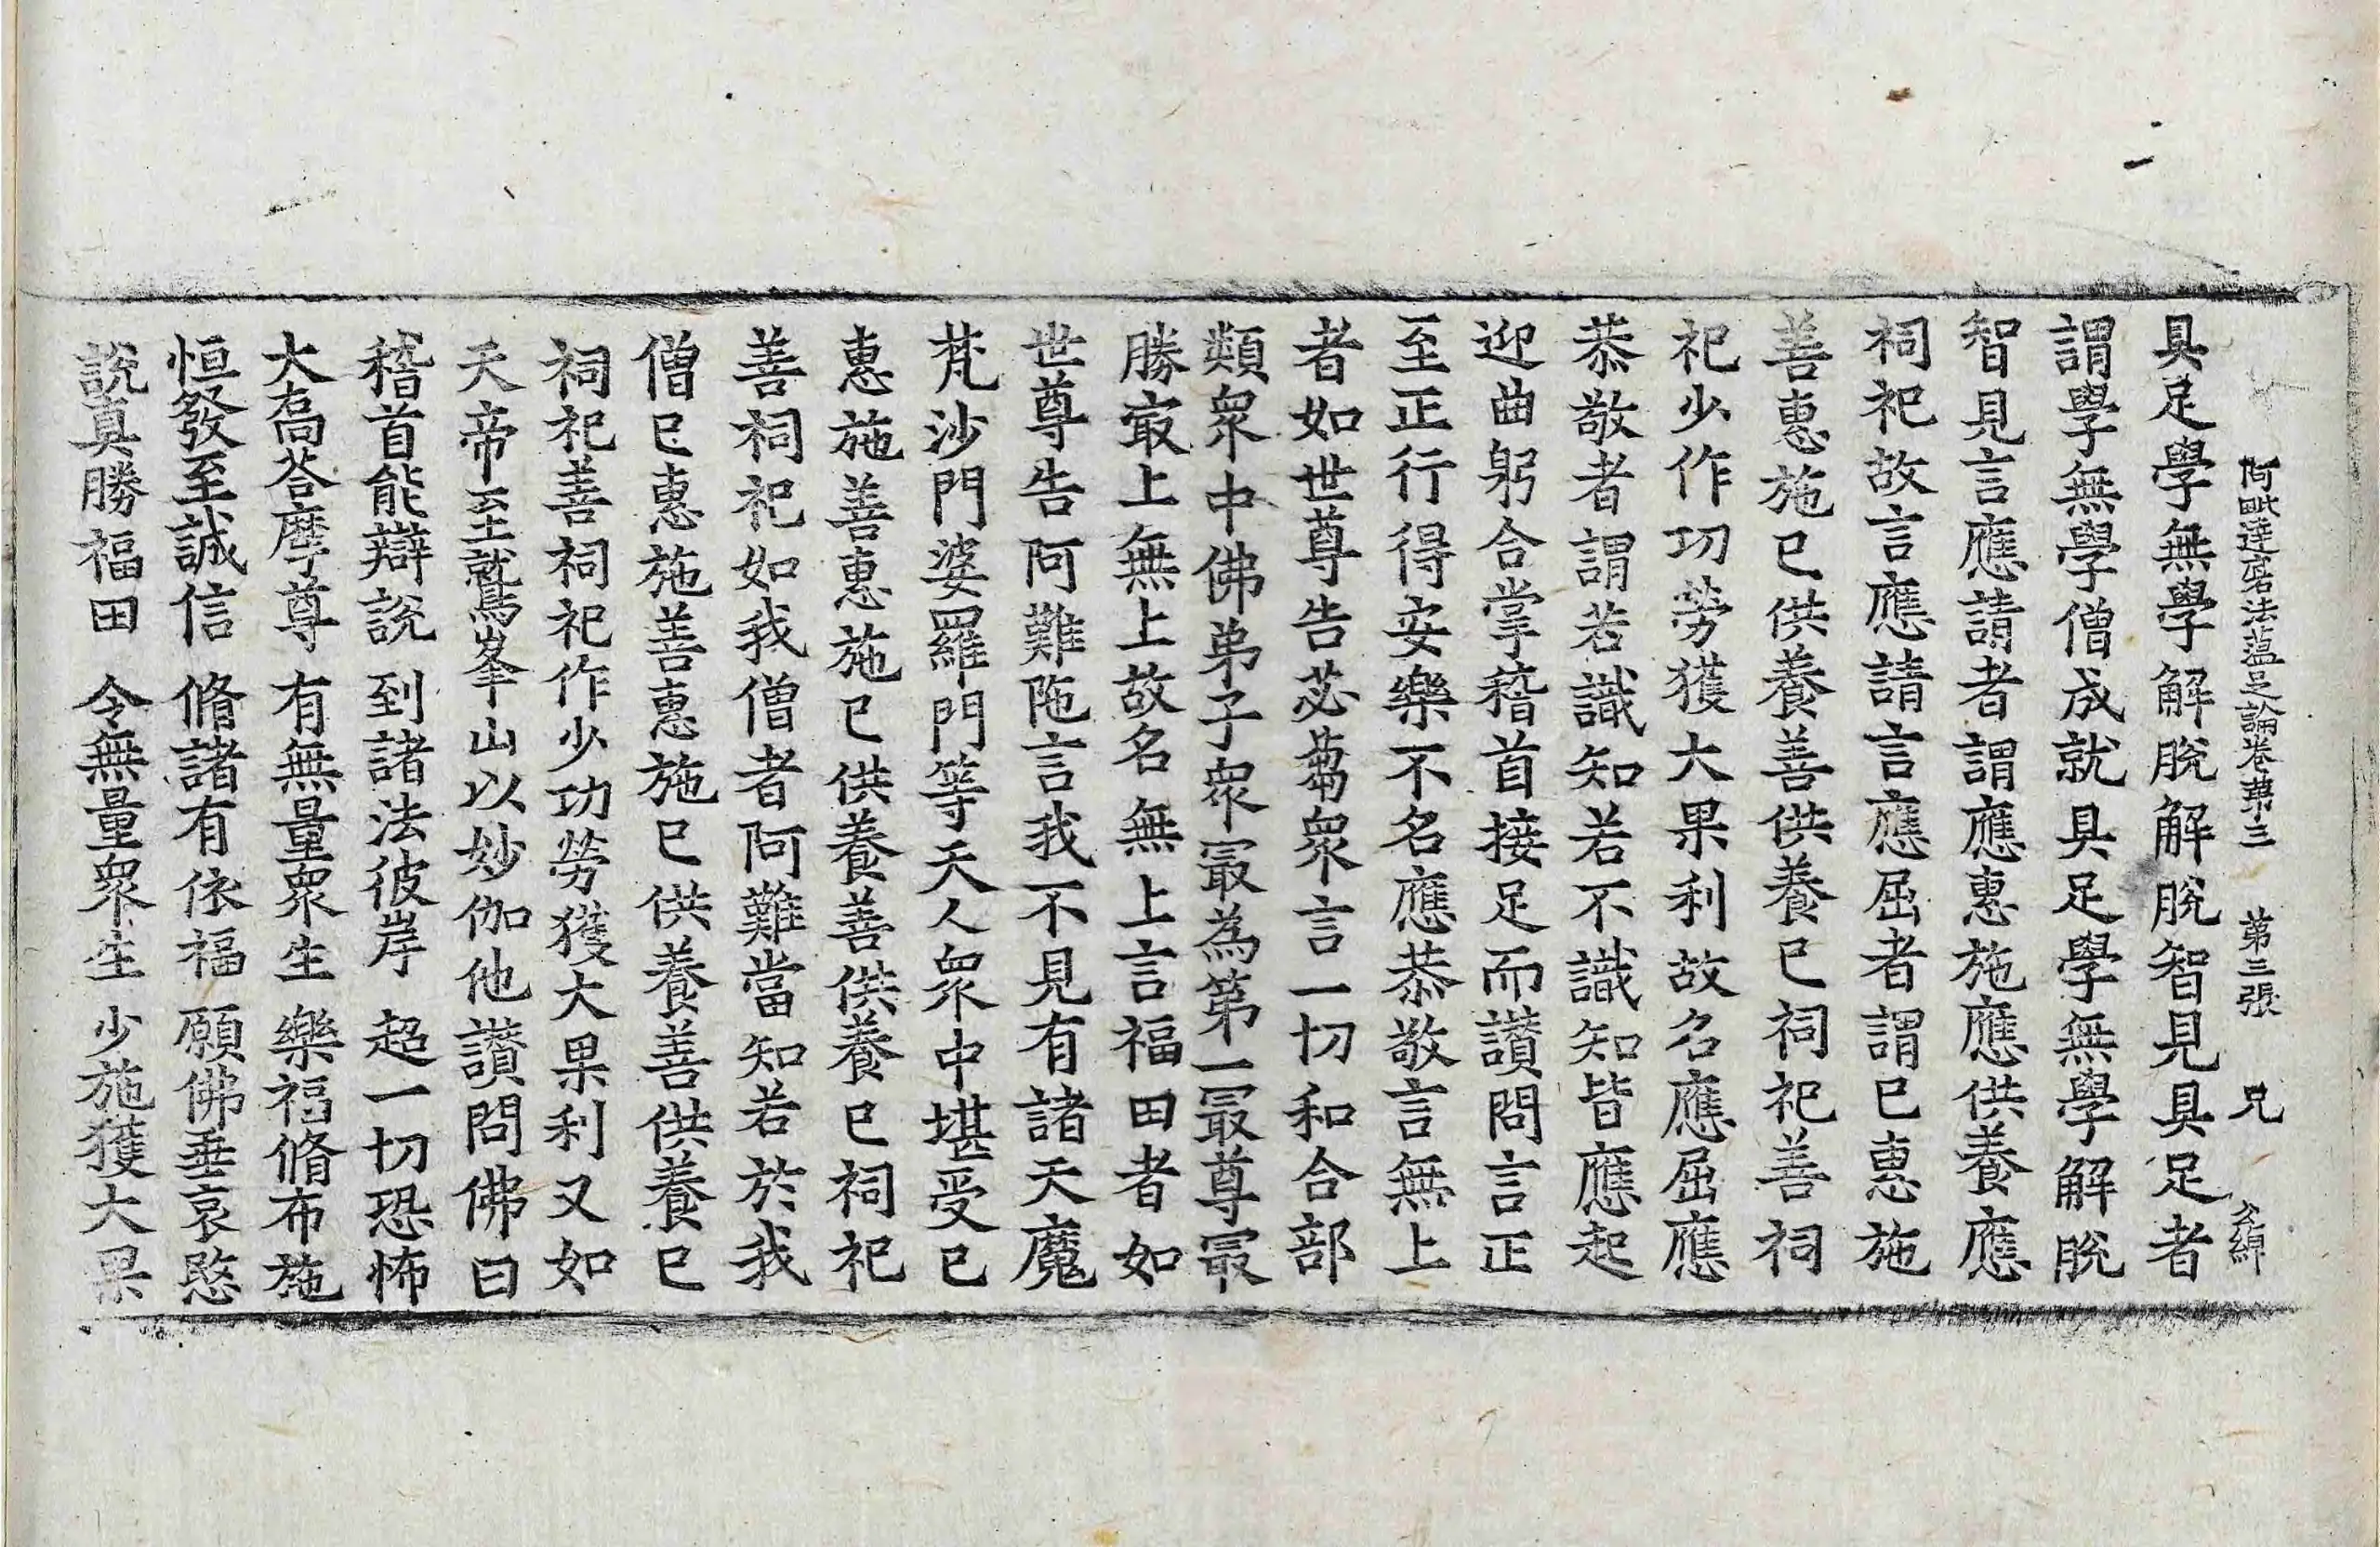 阿毗達磨法蘊足論卷第三　第三張　兄　公綽
具足學無學解脫解脫智見具足者
謂學無學僧成就具足學無學解脫
智見言應請者謂應惠施應供養應
祠祀故言應請言應屈者謂已惠施
善惠施已供養善供養已祠祀善祠
祀少作功勞獲大果利故名應屈應
恭敬者謂若識知若不識知皆應起
迎曲躬合掌稽首接足而讚問言正
至正行得安樂不名應恭敬言無上
者如世尊告苾蒭衆言一切和合部
類衆中佛弟子衆最為第一最尊最
勝㝡上無上故名無上言福田者如
世尊告阿難陁言我不見有諸天魔
梵沙門婆羅門等天人衆中堪受已
惠施善惠施已供養善供養已祠祀
善祠祀如我僧者阿難當知若於我
僧已惠施善惠施已供養善供養已
祠祀善祠祀作少功勞獲大果利又如
天帝至鷲峯山以妙伽他讚問佛曰
稽首能辯說　到諸法彼岸　超一切恐怖
大喬荅摩尊　有無量衆生　樂福脩布施
恒發至誠信　脩諸有依福　願佛垂哀愍
說真勝福田　令無量衆生　少施獲大果